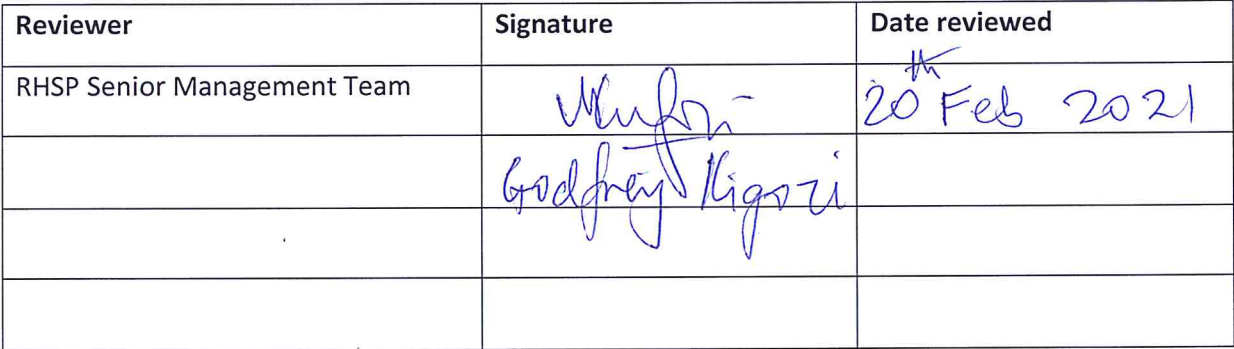 Reviewer Signature Date reviewed
RHSP Senior Management Team 20th Feb 2021
Godfrey Kigozi